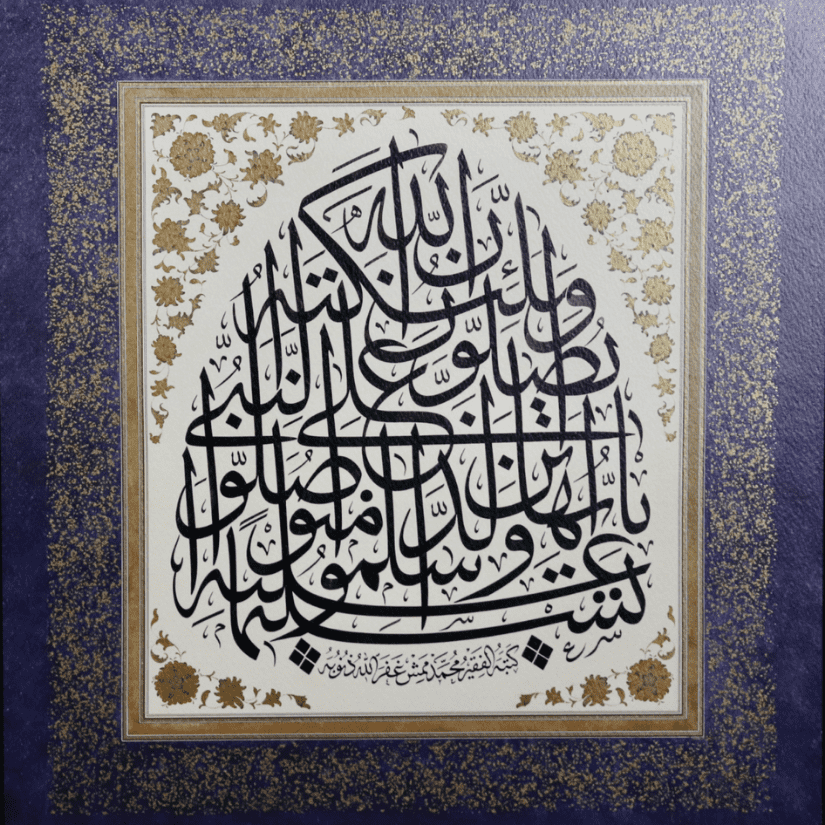 ان الله وملئكته
يصلون على النبى
يا ايها الذين امنوا صلوا
عليه وسلموا تسليما
كتبه الفقير محمد غفر الله ذنوبه